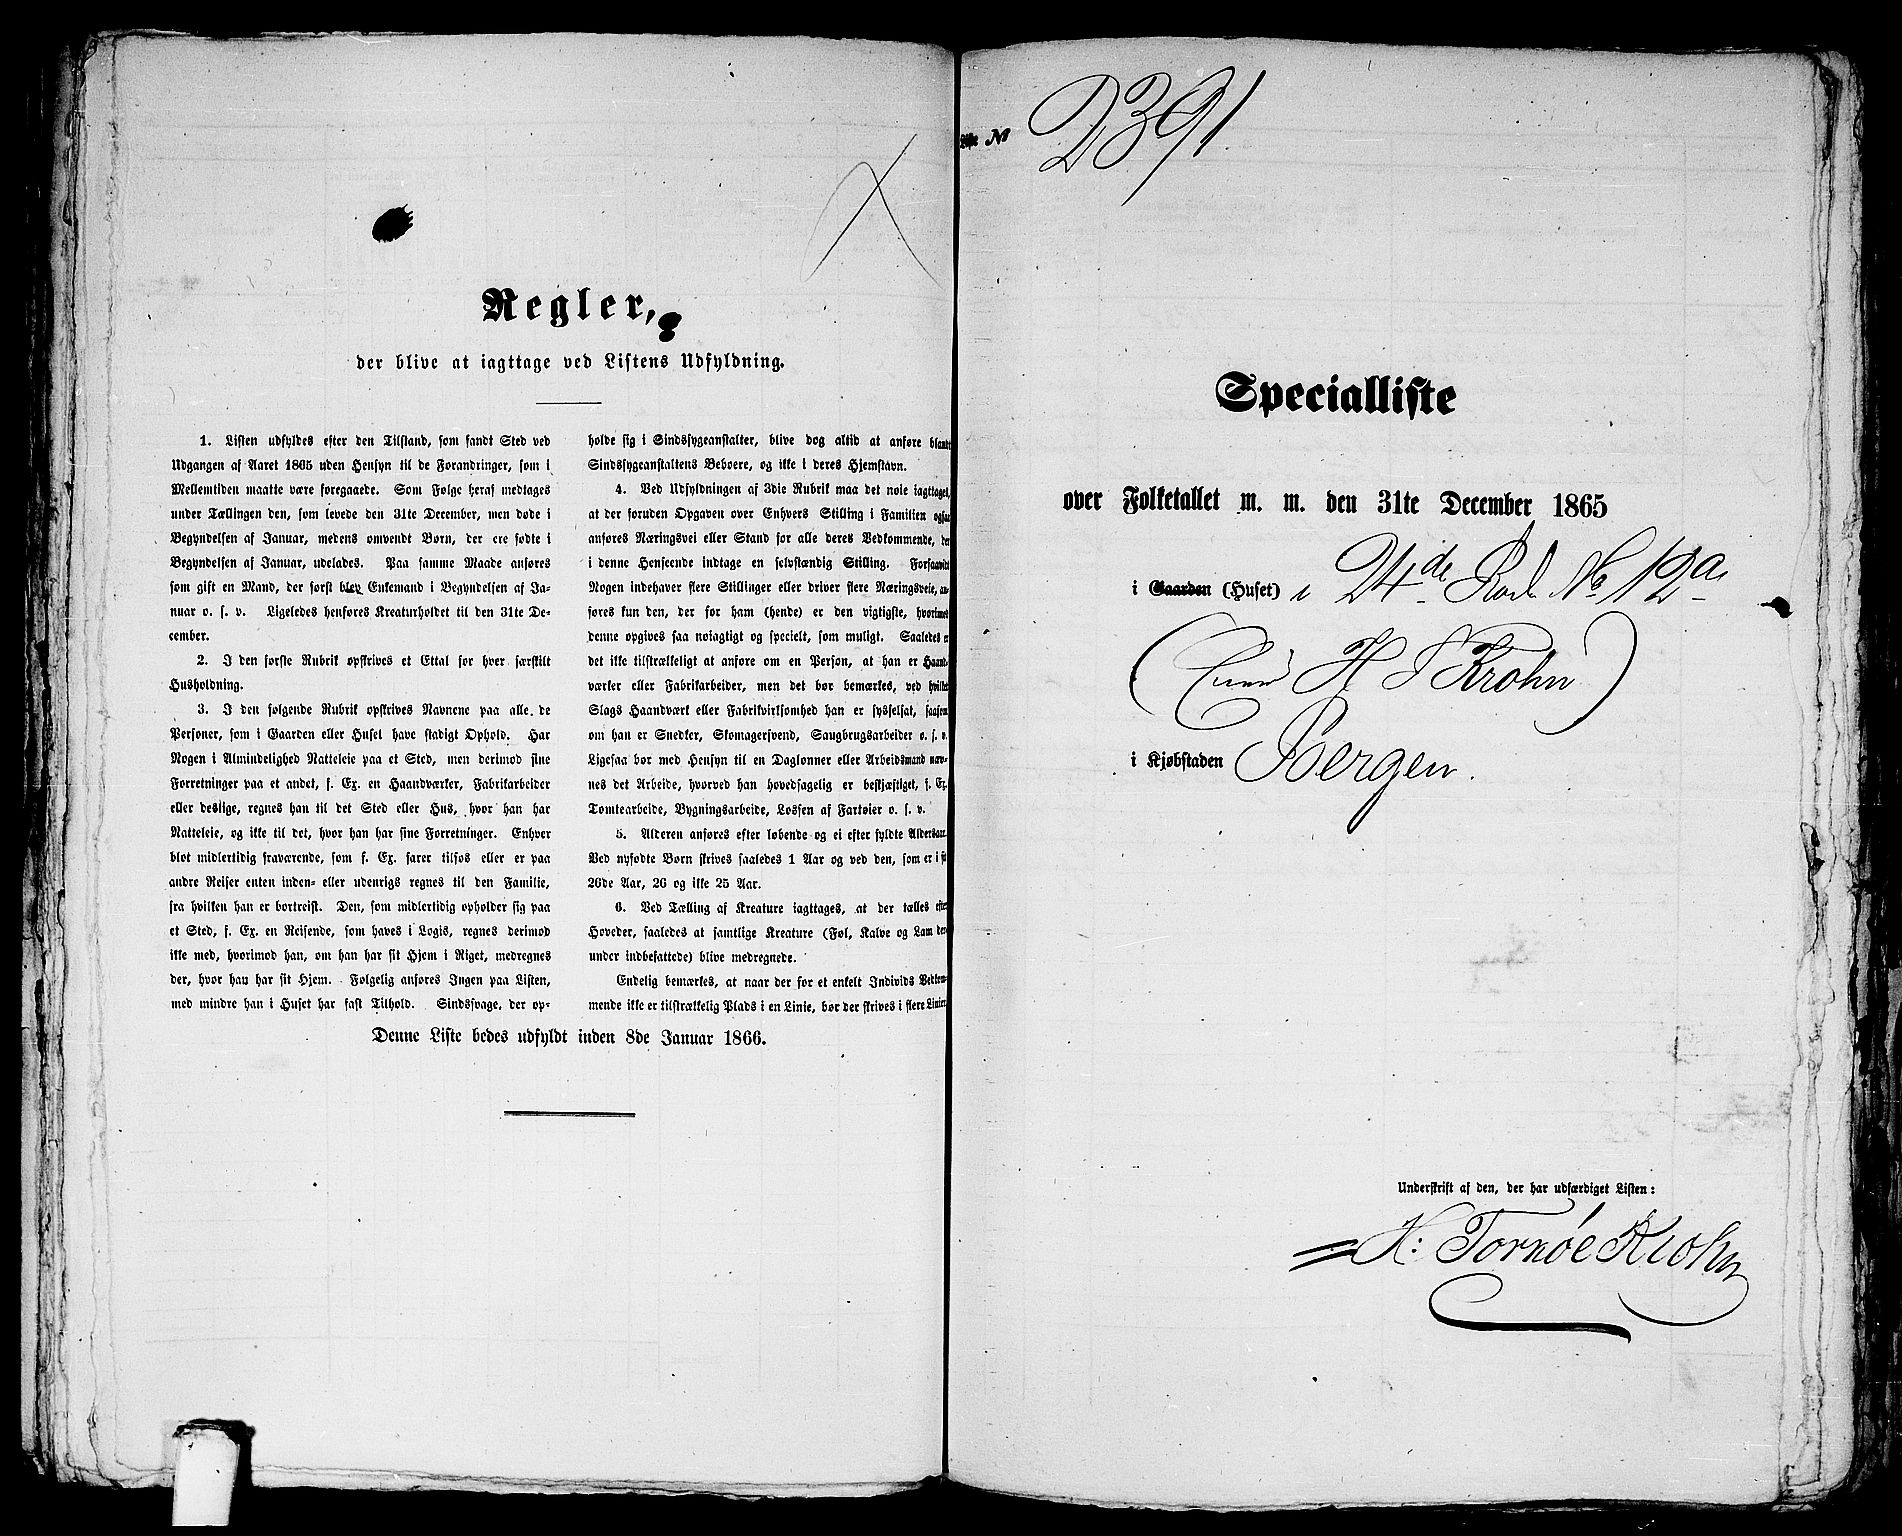 Regler,
der blive at iagttage ved Listens Udfyldning.
1. Listen udfyldes efter den Tilstand, som fandt Sted ved
Udgangen af Aaret 1865 uden Hensyn til de Forandringer, som i
Mellemtiden maatte være foregaaede. Som Følge heraf medtages
under Tællingen den, som levede den 31te December, men døde i
Begyndelsen af Januar, medens omvendt Børn, der ere fødte i
Begyndelsen af Januar, udelades. Paa samme Maade anføres
som gift en Mand, der først blev Enkemand i Begyndelsen af Ja-
nuar o. s. v. Ligeledes henføres Kreaturholdet til den 31te De-
cember.
2. I den første Rubrik opskrives et Ettal for hver særskilt
Husholdning.
3. I den følgende Rubrik opskrives Navnene paa alle de
Personer, som i Gaarden eller Huset have stadigt Ophold. Har
Nogen i Almindelighed Natteleie paa et Sted, men derimod sine
Forretninger paa et andet, f. Ex. en Haandværker, Fabrikarbeider
eller deslige, regnes han til det Sted eller Hus, hvor han har
Natteleie, og ikke til det, hvor han har sine Forretninger. Enhver
blot midlertidig fraværende, som f. Ex. farer tilsøs eller er paa
andre Reiser enten inden- eller udenrigs regnes til den Familie,
fra hvilken han er bortreist. Den, som midlertidig opholder sig paa
et Sted, f. Ex. en Reisende, som haves i Logis, regnes derimod
ikke med, hvorimod han, om han har sit Hjem i Riget, medregnes
der, hvor han har sit Hjem. Følgelig anføres Ingen paa Listen,
med mindre han i Huset har fast Tilhold. Sindssvage, der op-
holde sig i Sindssygeanstalter, blive dog altid at anføre blandt
Sindssygeanstaltens Beboere, og ikke i deres Hjemstavn.
4. Ved Udfyldningen af 3die Rubrik maa det nøie iagttages,
at der foruden Opgaven over Enhvers Stilling i Familien ogsaa
anføres Næringsvei eller Stand for alle deres Vedkommende, der
i denne Henseende indtage en selvstændig Stilling. Forsaavidt
Nogen indehaver flere Stillinger eller driver flere Næringsveie, an-
føres kun den, der for ham (hende) er den vigtigste, hvorimod
denne opgives saa nøiagtigt og specielt, som muligt. Saaledes er
det ikke tilstrækkeligt at anføre om en Person, at han er Haand-
værker eller Fabrikarbeider, men det bør bemærkes, ved hvilket
Slags Haandværk eller Fabrikvirksomhed han er sysselsat, saasom
om han er Snedker, Skomagersvend, Saugbrugsarbeider o. s. v.
Ligesaa bør med Hensyn til en Daglønner eller Arbeidsmand næv-
nes det Arbeide, hvorved han hovedsagelig er beskjæftiget, f. Ex.
Tomtearbeide, Bygningsarbeide, Lossen af Fartøier o. s. v.
5. Alderen anføres efter løbende og ei efter fyldte Aldersaar.
Ved nyfødte Børn skrives saaledes 1 Aar og ved den, som er i sit
26de Aar, 26 og ikke 25 Aar.
6. Ved Tælling af Kreature iagttages, at der tælles efter
Hoveder, saaledes at samtlige Kreature (Føl, Kalve og Lam der-
under indbefattede) blive medregnede.
Endelig bemærkes, at naar der for et enkelt Individs Vedkom-
mende ikke er tilstrækkelig Plads i en Linie, bør der skrives i flere Linier.
Denne Liste bedes udfyldt inden 8de Januar 1866.
Liste No 2391.
Specialliste
over Folketallet m. m. den 31te December 1865
i Gaarden (Huset) i 24de Rode No 12a
H Krohn)
i Kjøbstaden Bergen.
Underskrift af den, der har udfærdiget Listen:
H: Tornöe Krohn